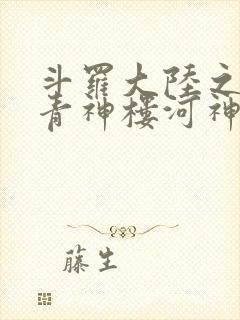 斗羅大陸之
青神樓河神
藤生